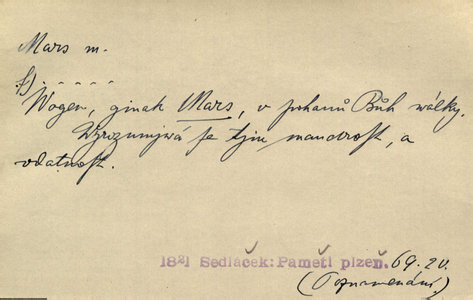 Mars m.
Wogen, ginak Mars, v pohanů Bůh wálky.
Wyrozumjwá se tjm maudrost, a
vdatnost.
1821 Sedláček: Paměti plzeň. 69. zv.
(Poznamenání.)